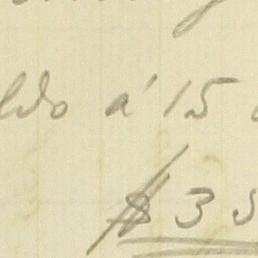 ldo á 15
$ 35